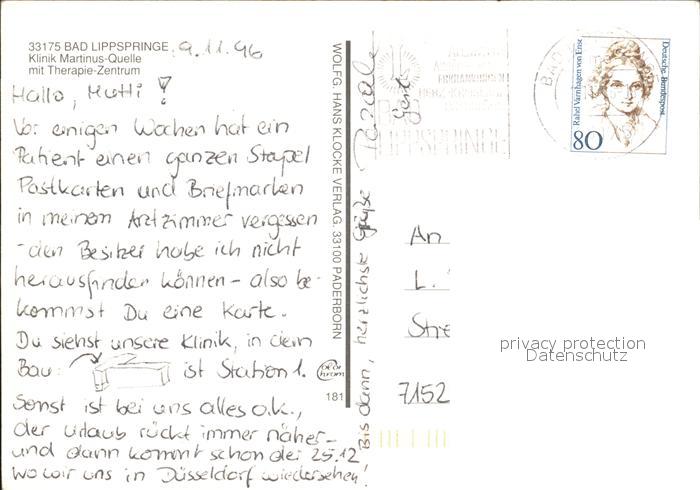 33175 BAD LIPPSPRINGE, 9.11.96
Klinik Martinus-Quelle
mit Therapie-Zentrum
Hallo, Mutti!
Vor einigen Wochen hat ein
Patient einen ganzen Stapel
Postkarten und Briefmarken
in meinem Arztzimmer vergessen
- den Besitzer habe ich nicht
herausfinden können - also be-
kommst Du eine Karte.
Du siehst unsere Klinik, in dem
Bau: ist Station 1.
Sonst ist bei uns alles o.k.,
der Urlaub rückt immer näher -
und dann kommt schon der 25.12
wo wir uns in Düsseldorf wiedersehen!
Bis dann, herzlichste Grüße
WOLFG. HANS KLOCKE VERLAG. 33100 PADERBORN
181
LIPPSPRINGE
Rahel Varnhagen von Ense
Deutsche Bundespost
80
An
L.
Stre
7152
privacy protection
Datenschutz